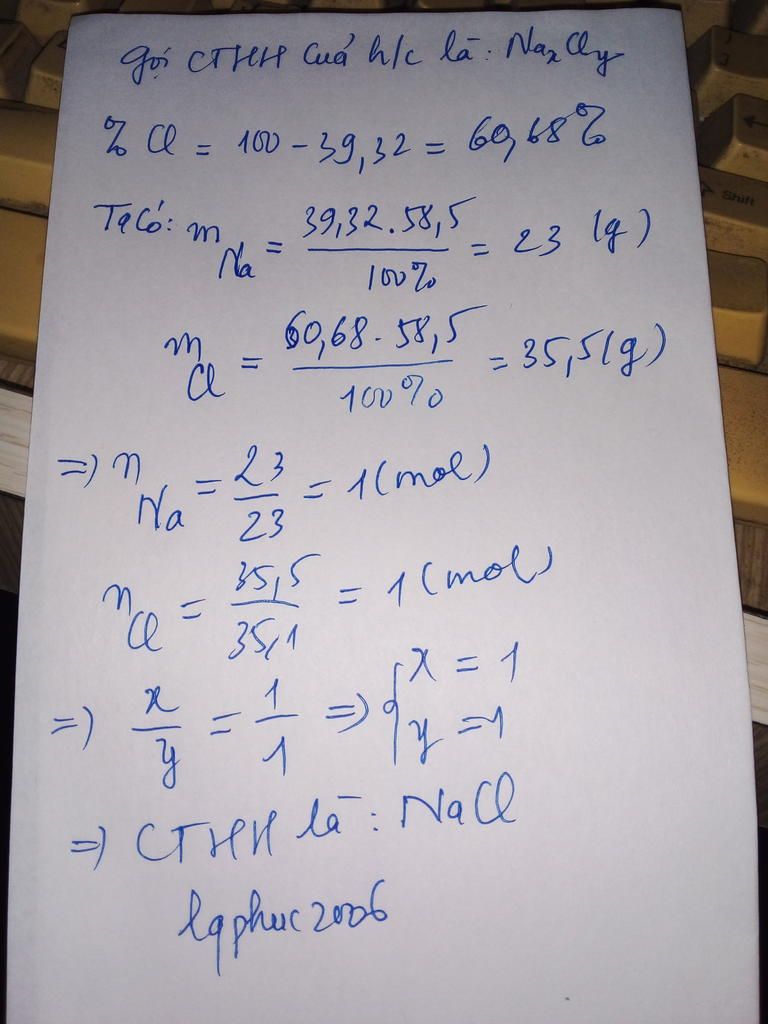 Gọi CTHH của h/c là: NaxCly
% Cl = 100 - 39,32 = 60,68%
Ta có: mNa = 39,32.58,5 / 100% = 23 (g)
mCl = 60,68.58,5 / 100% = 35,5 (g)
=> nNa = 23 / 23 = 1 (mol)
nCl = 35,5 / 35,1 = 1 (mol)
=> x / y = 1 / 1 => { x = 1
y = 1
=> CTHH là: NaCl
lqphuc2006
Shift